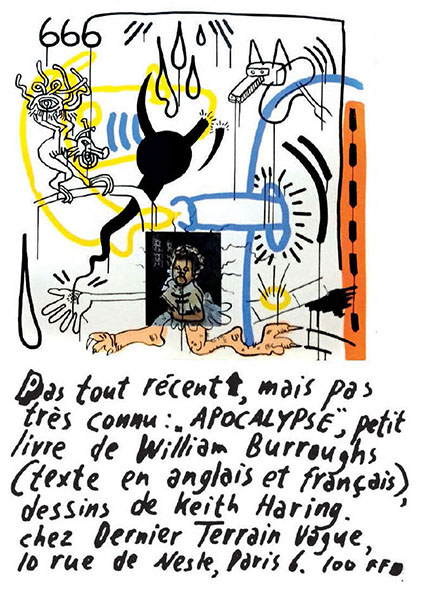 666
Pas tout récent, mais pas
très connu: "APOCALYPSE", petit
livre de William Burroughs
(texte en anglais et français),
dessins de Keith Haring.
chez Dernier Terrain Vague,
10 rue de Nesle, Paris 6. 100 FF